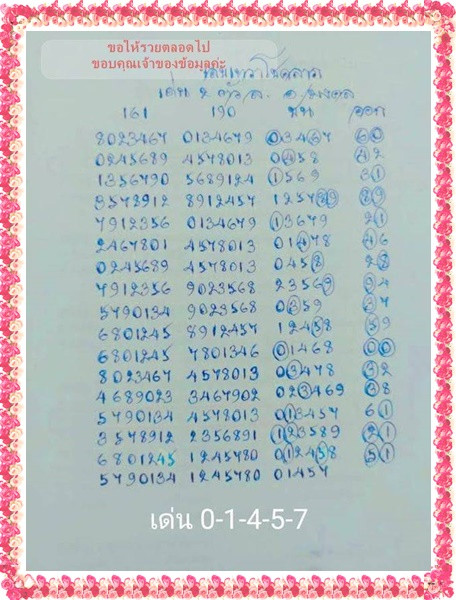 ขอให้รวยตลอดไป
ขอบคุณเจ้าของข้อมูลค่ะ
เด่น 2 ตัว
161 190 ชน ออก
8023467 0134679 03467 60
0245689 4578013 0458 42
1356790 5689124 1569 31
3578912 8912457 125789 89
7912356 0134679 13679 21
2467801 4578013 01478 46
0245689 4578013 0458 28
7912356 9023568 23569 94
5790134 9023568 0359 37
6801245 8912457 12458 59
6801245 7801346 01468 00
8023467 4578013 03478 32
4689023 3467902 023469 38
5790134 4578013 013457 61
3578912 2356891 123589 21
6801245 1245780 012458 51
5790134 1245780 01457
เด่น 0-1-4-5-7